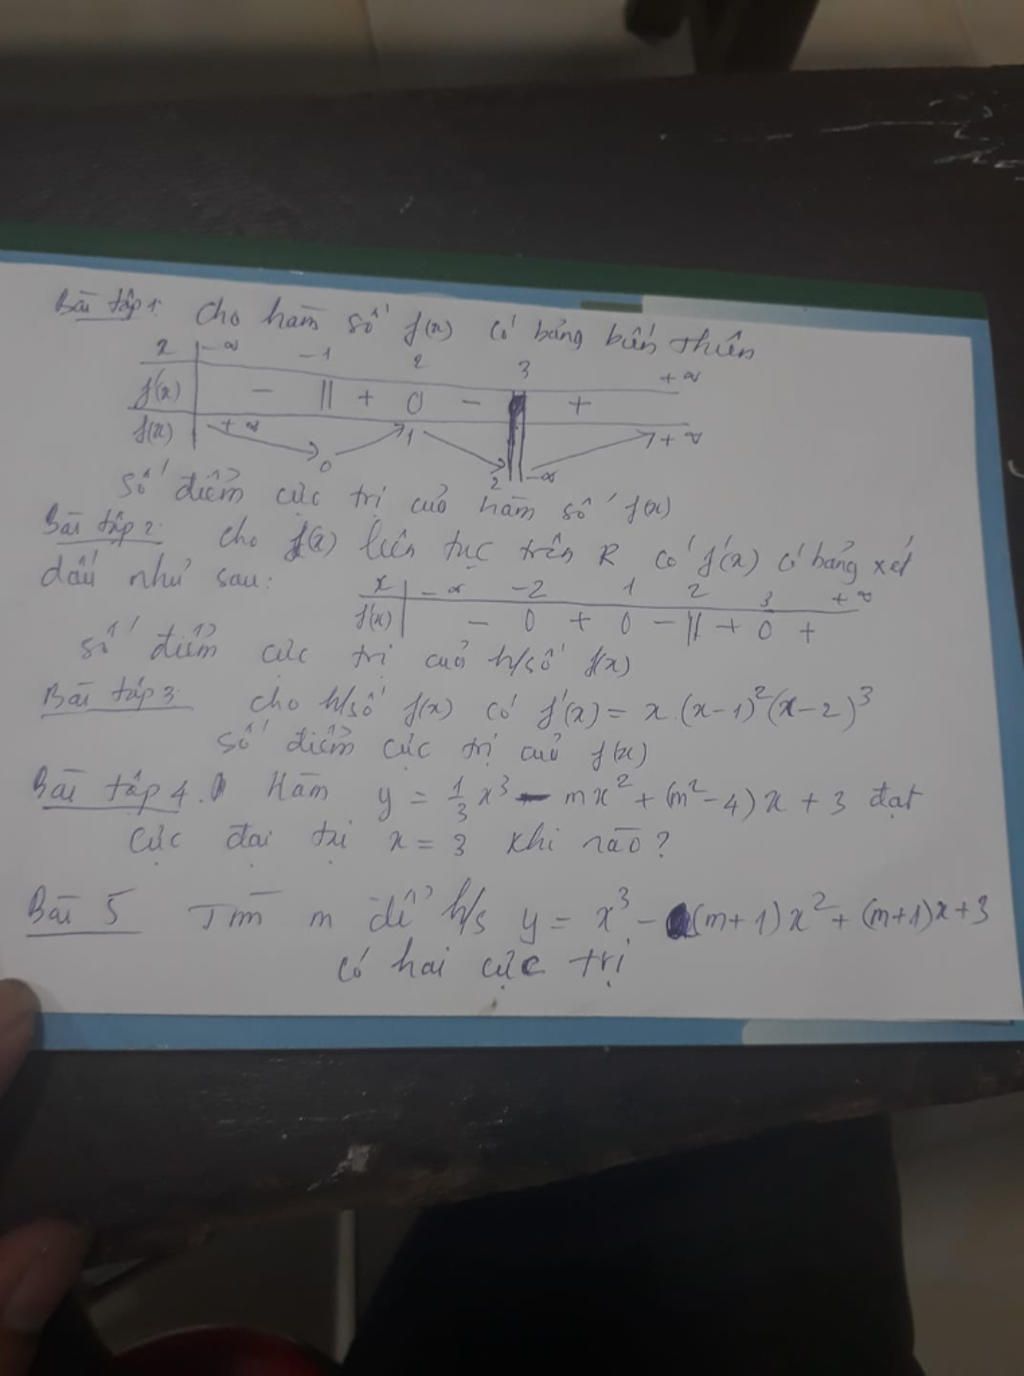 Bài tập 1. Cho hàm số f(x) có bảng biến thiên
x | -∞ -1 2 3 +∞
f'(x) | - || + 0 - || +
f(x) | +∞ 0 1 2 || -∞ +∞
Số điểm cực trị của hàm số f(x)
Bài tập 2. Cho f(x) liên tục trên R có f'(x) có bảng xét
dấu như sau:
x | -∞ -2 1 2 3 +∞
f'(x) | - 0 + 0 - || + 0 +
số điểm cực trị của h/số f(x)
Bài tập 3. cho h/số f(x) có f'(x) = x.(x-1)²(x-2)³
số điểm cực trị của f(x)
Bài tập 4. Hàm y = 1/3 x³ - mx² + (m²-4)x + 3 đạt
cực đại tại x = 3 khi nào?
Bài 5 Tìm m để h/s y = x³ - (m+1)x² + (m+1)x+3
có hai cực trị